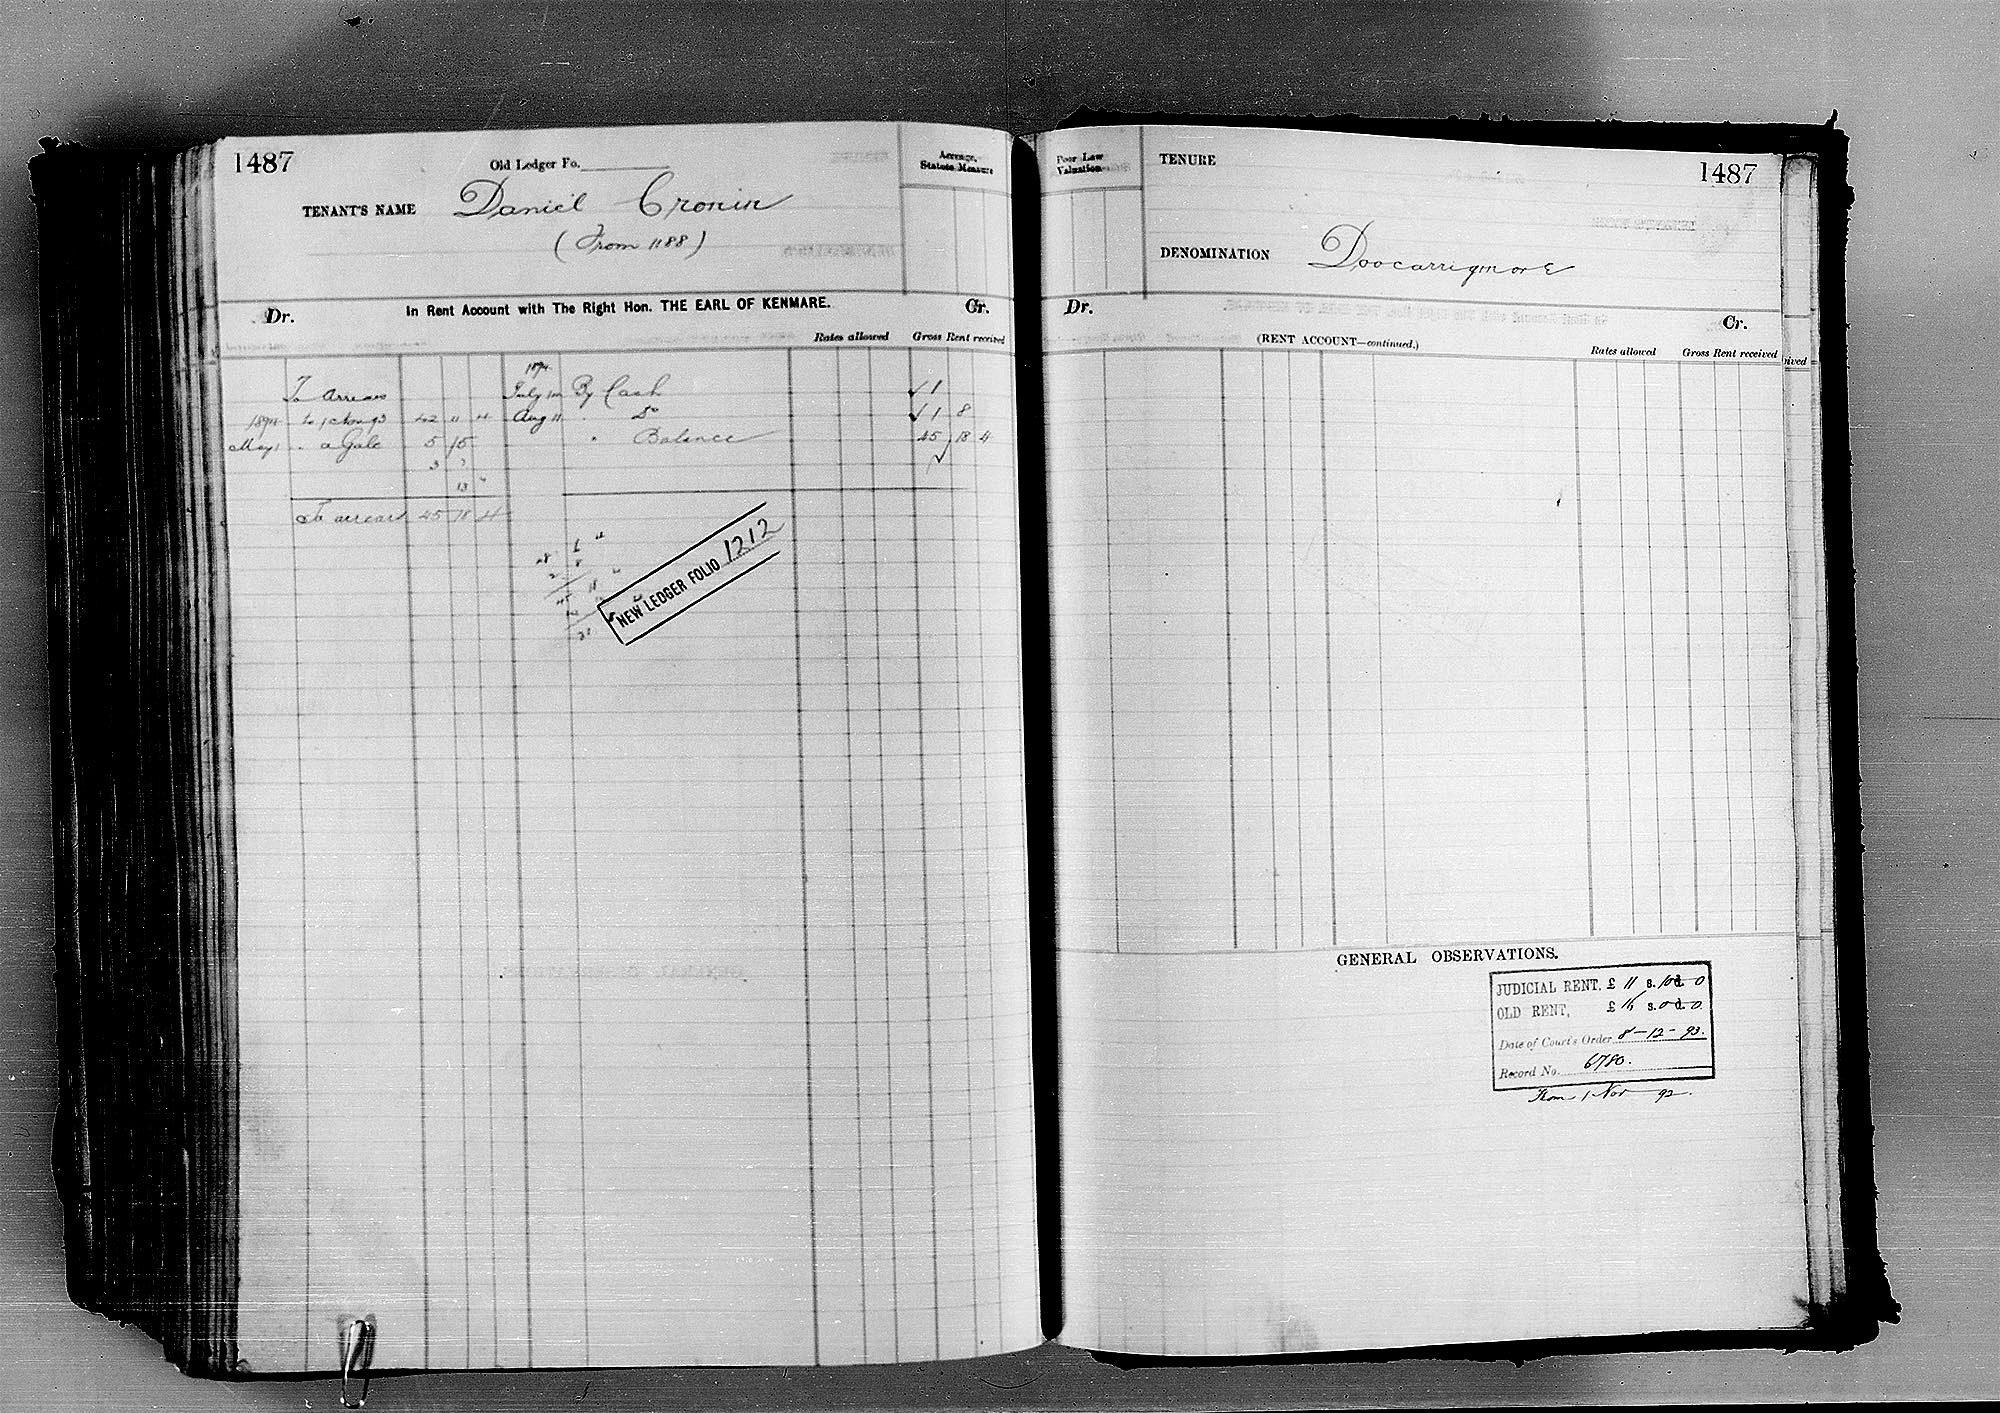 1487
Old Ledger Fo.
Acreage, Statute Measure
TENANT'S NAME Daniel Cronin
(From 1188)
Dr. In Rent Account with The Right Hon. THE EARL OF KENMARE. Cr.
Rates allowed Gross Rent received
1894
To Arrears July By Cash ✓ 1
1894 to 1 Nov 93 42 " 4 Aug 11 " Do ✓ 1 8
May 1 " a Gale 5 15 " Balance 45 18 4
3
13
To arrears 45 18 4
NEW LEDGER FOLIO 1212
Poor Law Valuation
TENURE
1487
DENOMINATION Doocarrigmore
Dr. Cr.
(RENT ACCOUNT—continued.)
Rates allowed Gross Rent received
GENERAL OBSERVATIONS.
JUDICIAL RENT, £ 11 s. 10 d. 0
OLD RENT, £ 16 s. 0 d. 0
Date of Court's Order 8-12-93.
Record No. 6780.
From 1 Nov 92.